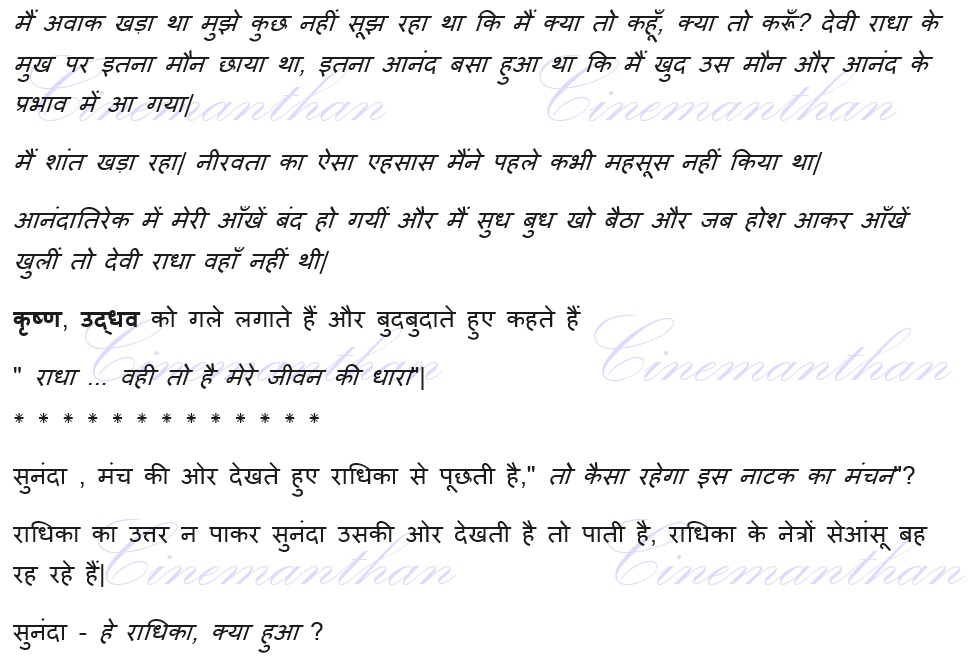 मैं अवाक खड़ा था मुझे कुछ नहीं सूझ रहा था कि मैं क्या तो कहूँ, क्या तो करूँ? देवी राधा के
मुख पर इतना मौन छाया था, इतना आनंद बसा हुआ था कि मैं खुद उस मौन और आनंद के
प्रभाव में आ गया|
Cinemanthan Cinemanthan
मैं शांत खड़ा रहा| नीरवता का ऐसा एहसास मैंने पहले कभी महसूस नहीं किया था|
आनंदातिरेक में मेरी आँखें बंद हो गयीं और मैं सुध बुध खो बैठा और जब होश आकर आँखें
खुलीं तो देवी राधा वहाँ नहीं थी|
कृष्ण, उद्धव को गले लगाते हैं और बुदबुदाते हुए कहते हैं
Cinemanthan Cinemanthan
" राधा ... वही तो है मेरे जीवन की धारा"|
* * * * * * * * * * * * *
सुनंदा , मंच की ओर देखते हुए राधिका से पूछती है," तो कैसा रहेगा इस नाटक का मंचन"?
राधिका का उत्तर न पाकर सुनंदा उसकी ओर देखती है तो पाती है, राधिका के नेत्रों सेआंसू बह
रह रहे हैं|
Cinemanthan Cinemanthan
सुनंदा - हे राधिका, क्या हुआ ?